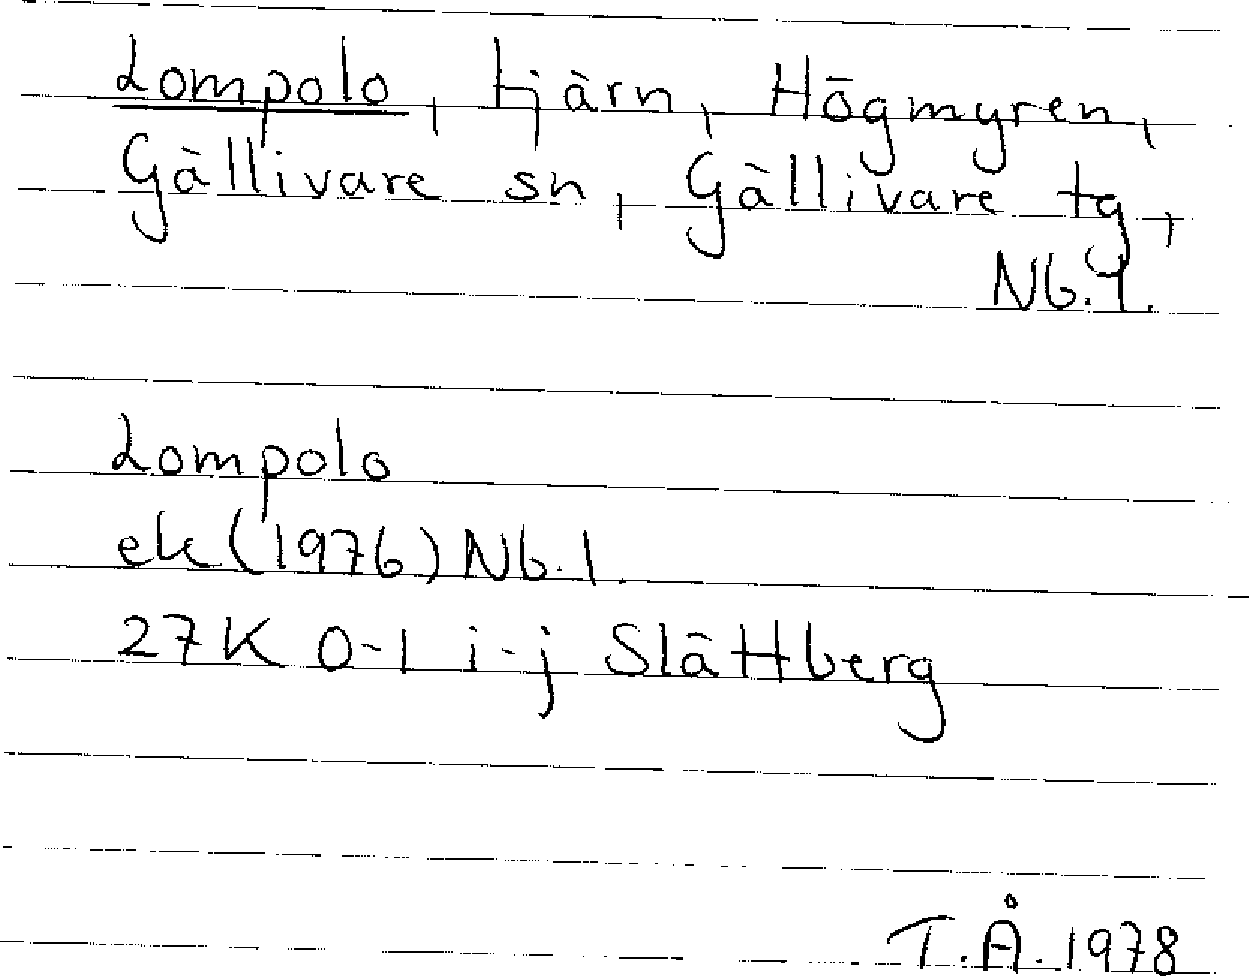 Lompolo, tjärn, Högmyren,
Gällivare sn, Gällivare tg,
Nb. l.
Lompolo
ek (1976) Nb. l.
27K 0-1 i-j Slättberg
T.Å. 1978